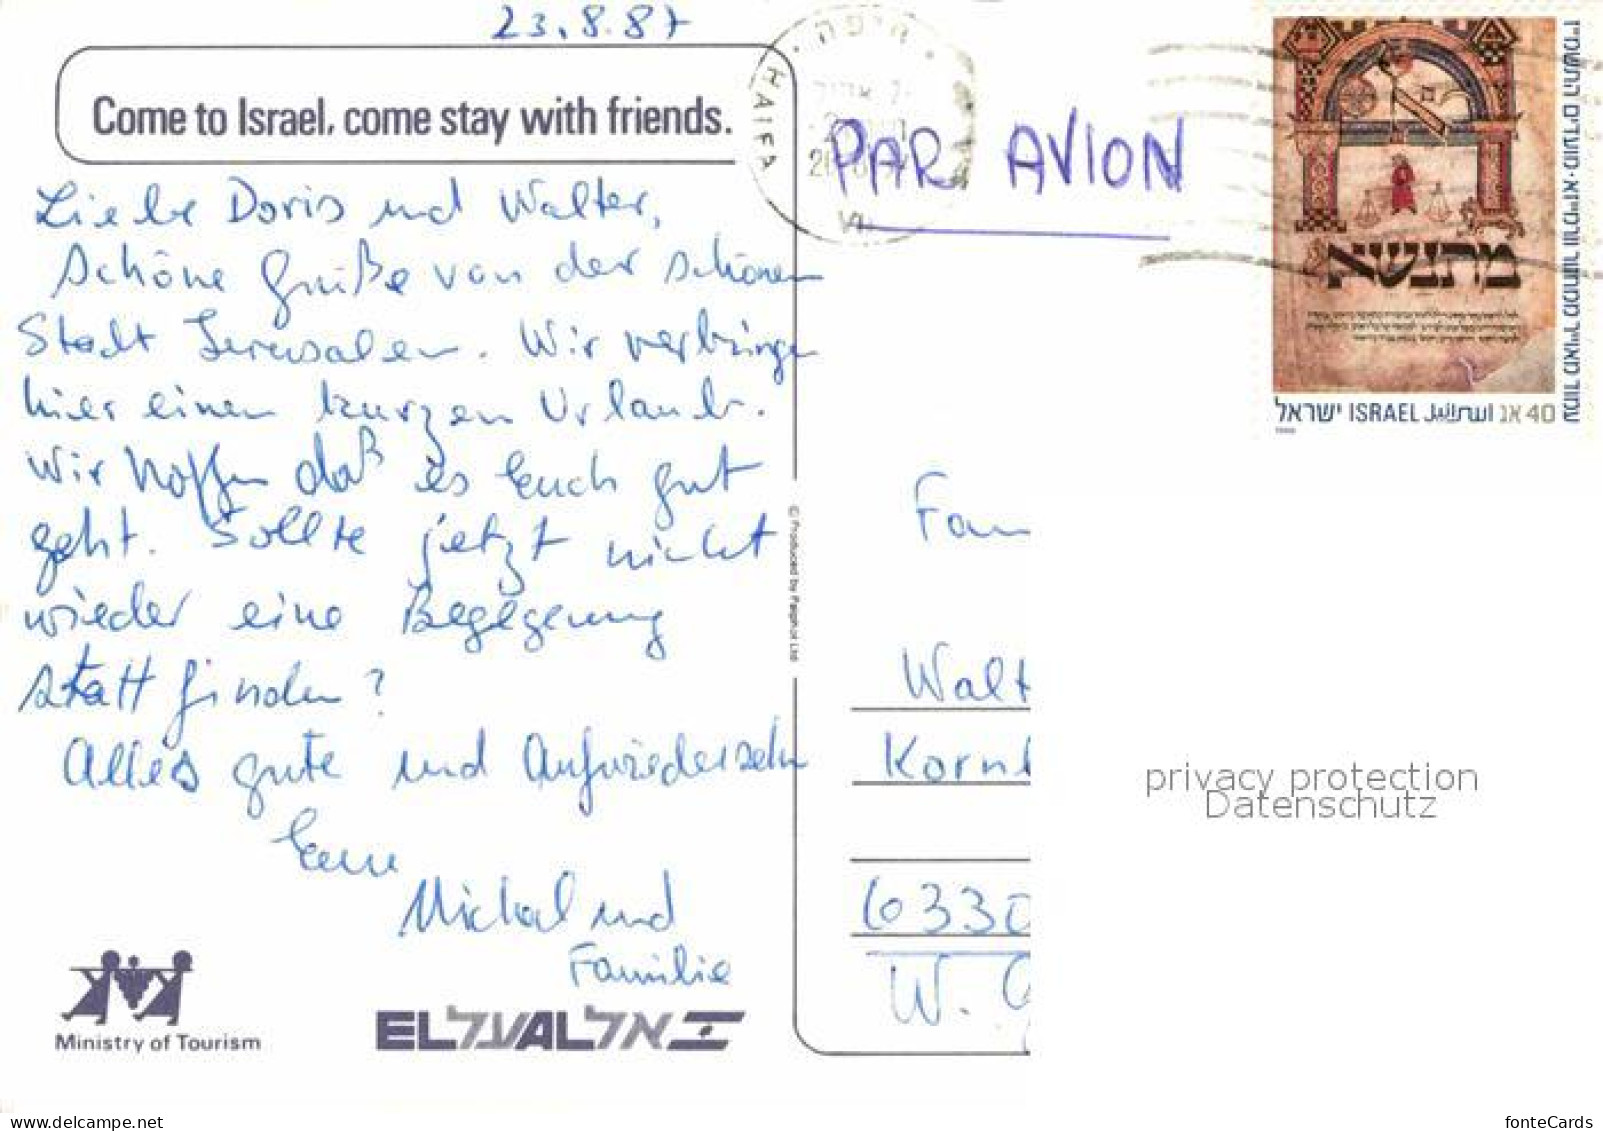 23.8.87
Come to Israel, come stay with friends.
HAIFA
חיפה
PAR AVION
Liebe Doris und Walter,
schöne Grüße von der schönen
Stadt Jerusalem. Wir verbringen
hier einen kurzen Urlaub.
Wir hoffen daß es Euch gut
geht. Sollte jetzt nicht
wieder eine Begegnung
statt finden?
Alles gute und Aufwiedersehn
Eure
Michal und
Familie
Ministry of Tourism
ELעלALאל
© Produced by Palphot Ltd
מתנשא
ישראל ISRAEL اسرائيل
א 40
Fam
Walt
Korn
6330
W.
privacy protection
Datenschutz
www.delcampe.net
fonteCards